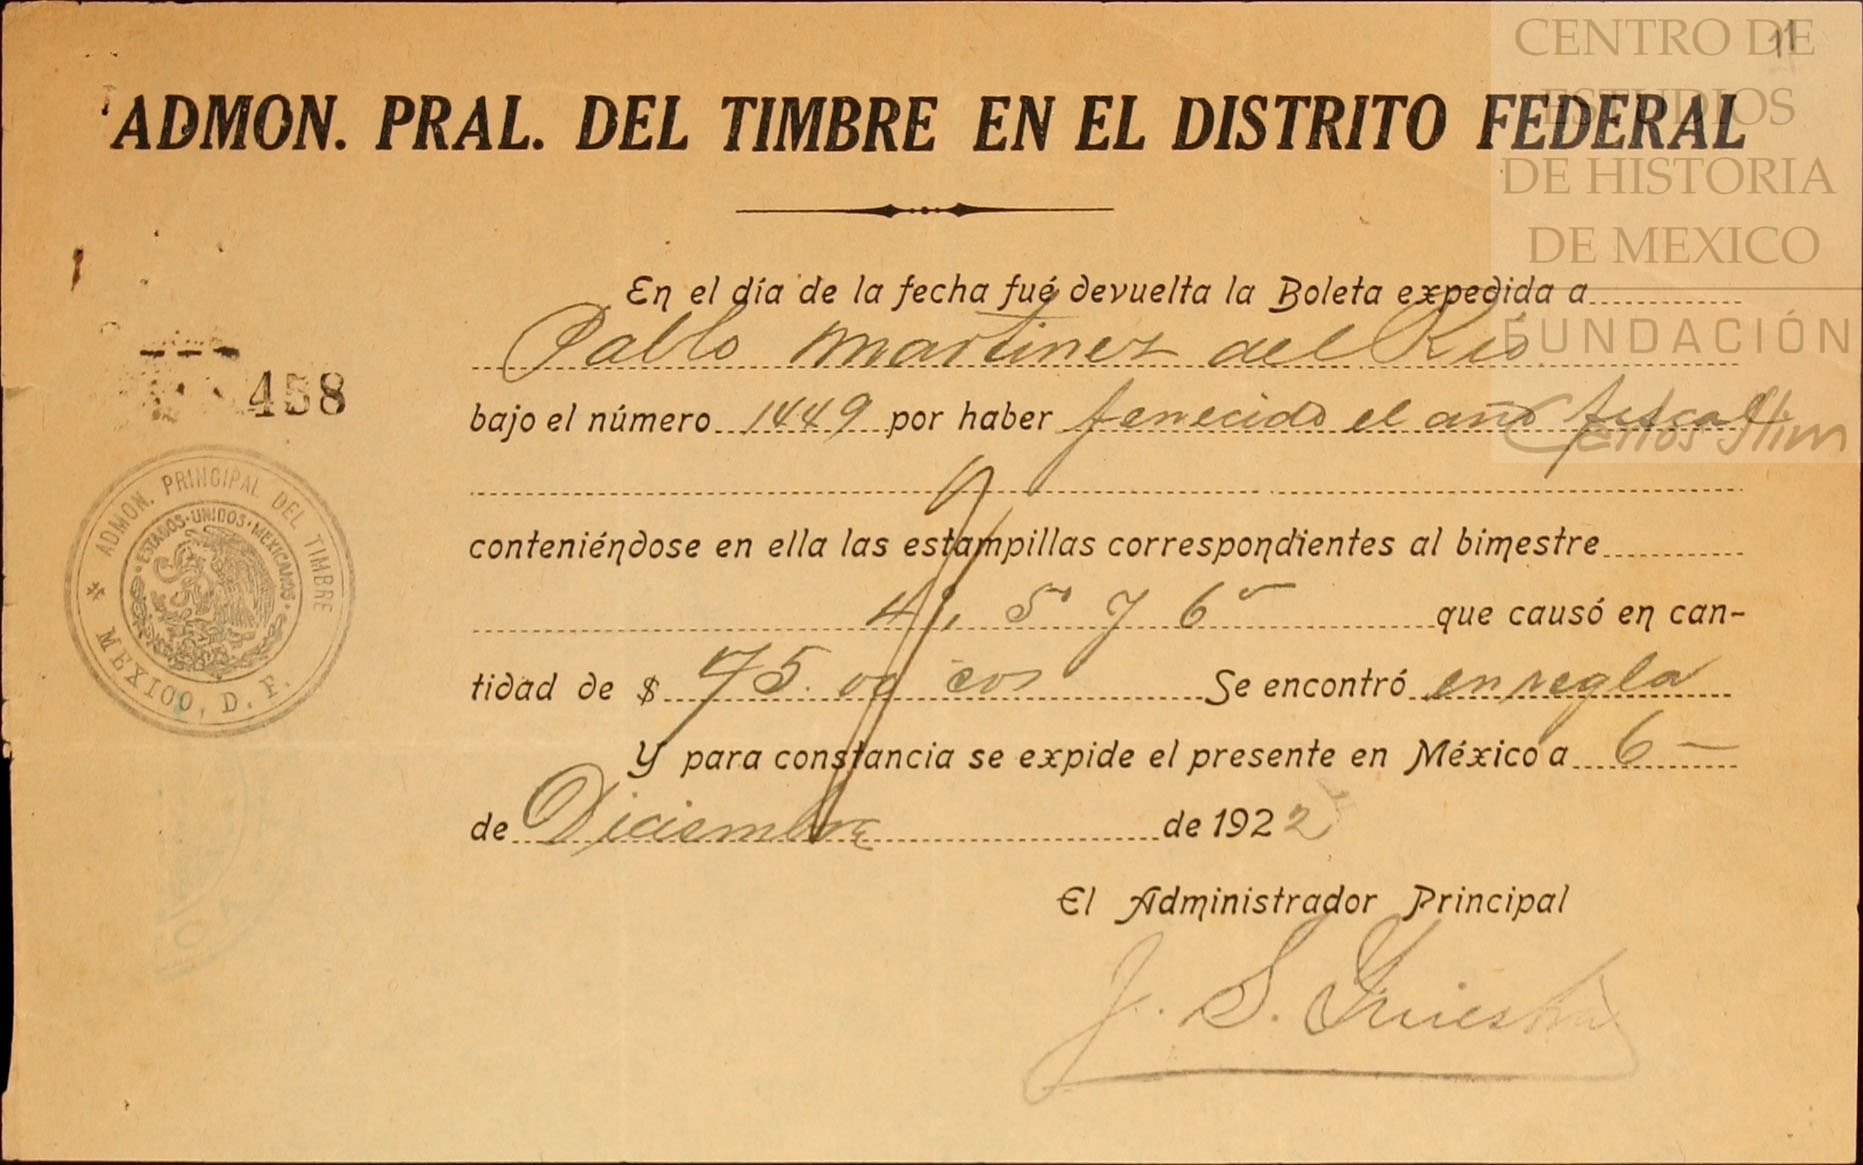 CENTRO DE
ESTUDIOS
DE HISTORIA
DE MEXICO
FUNDACIÓN
Carlos Slim
11
ADMON. PRAL. DEL TIMBRE EN EL DISTRITO FEDERAL
En el día de la fecha fué devuelta la Boleta expedida a
Pablo Martinez del Rio
bajo el número 1449 por haber fenecido el año fiscal
conteniéndose en ella las estampillas correspondientes al bimestre
4º, 5º y 6º que causó en can-
tidad de $ 75.00 cvs Se encontró en regla
Y para constancia se expide el presente en México a 6
de Diciembre de 1922
El Administrador Principal
J. S.
458
ADMON. PRINCIPAL DEL TIMBRE
ESTADOS·UNIDOS·MEXICANOS
MEXICO, D. F.